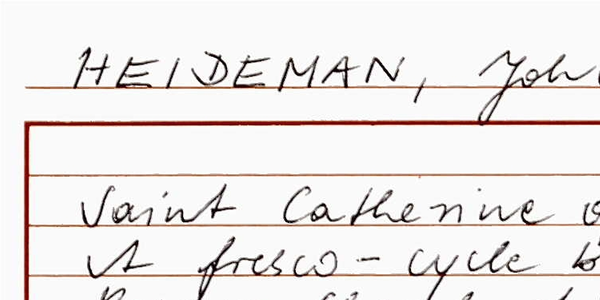 HEIDEMAN, Joh
Saint Catherine
A fresco-cycle